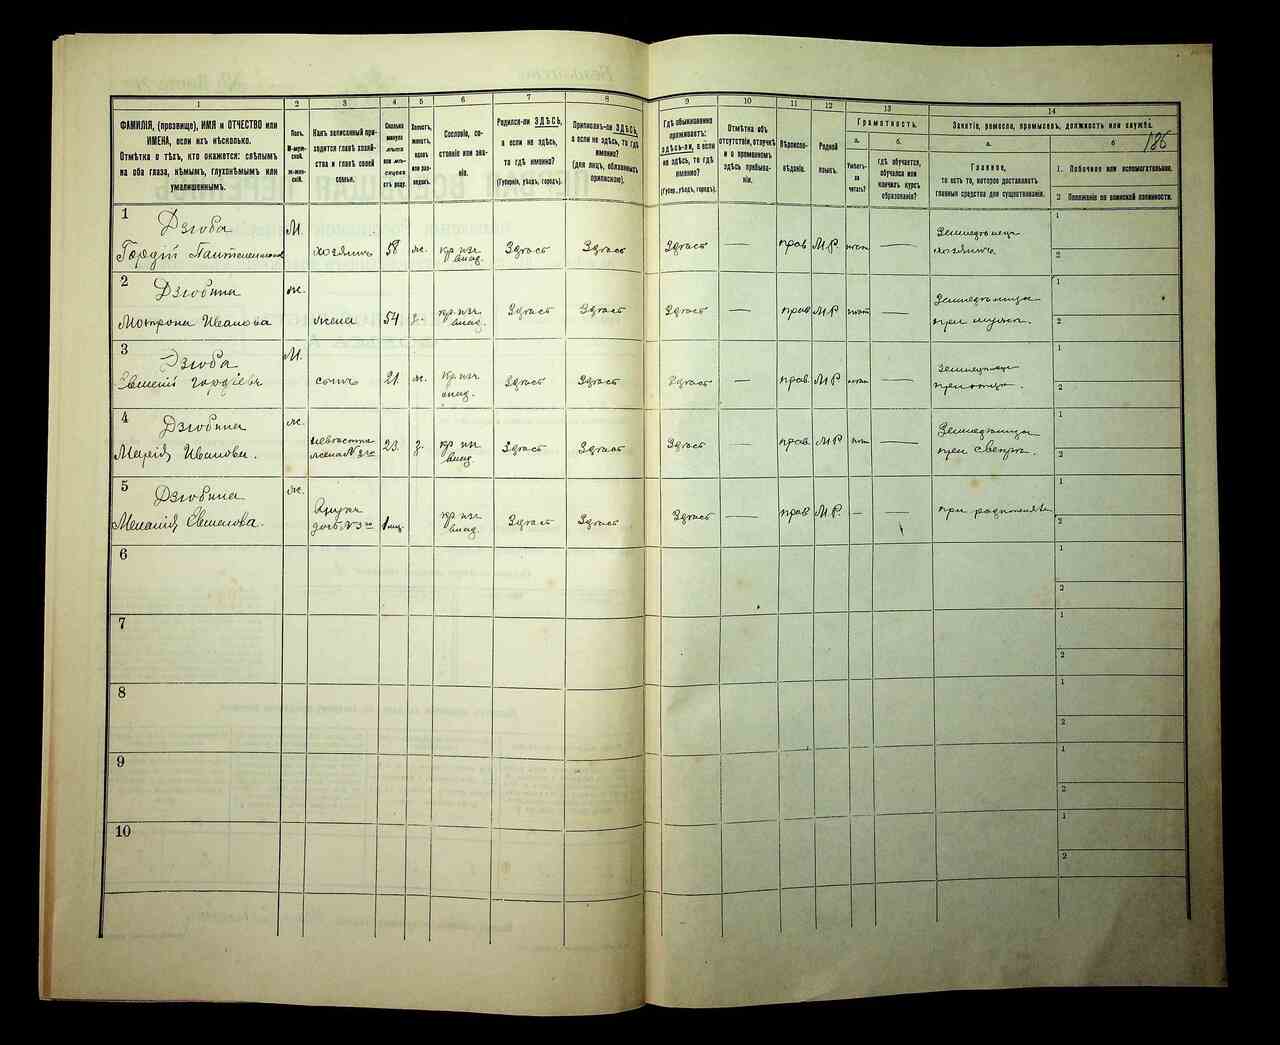 1
2
3
4
5
6
7
8
9
10
11
12
13
14
ФАМИЛІЯ, (прозвище), ИМЯ и ОТЧЕСТВО или
ИМЕНА, если ихъ нѣсколько.
Отмѣтка о тѣхъ, кто окажется: слѣпымъ
на оба глаза, нѣмымъ, глухонѣмымъ или
умалишеннымъ.
Полъ.
М-муж-
ской.
Ж-жен-
скій.
Какъ записанный при-
ходится главѣ хозяй-
ства и главѣ своей
семьи.
Сколько
минуло
лѣтъ
или мѣ-
сяцевъ
отъ роду.
Холостъ,
женатъ,
вдовъ
или раз-
веденъ.
Сословіе, со-
стояніе или зва-
ніе.
Родился-ли ЗДѢСЬ,
а если не здѣсь,
то гдѣ именно?
(Губернія, уѣздъ, городъ).
Приписанъ-ли ЗДѢСЬ,
а если не здѣсь, то гдѣ
именно?
(для лицъ, обязанныхъ
припискою).
Гдѣ обыкновенно
проживаетъ:
ЗДѢСЬ-ли, а если
не здѣсь, то гдѣ
именно?
(Губер., уѣздъ, городъ).
Отмѣтка объ
отсутствіи, отлучкѣ
и о временномъ
здѣсь пребыва-
ніи.
Вѣроиспо-
вѣданіе.
Родной
языкъ.
Грамотность.
а.
б.
Умѣетъ-
ли
читать?
гдѣ обучается,
обучался или
кончилъ курсъ
образованія?
Занятіе, ремесло, промыселъ, должность или служба.
а.
б
186
Главное,
то есть то, которое доставляетъ
главныя средства для существованія.
1. Побочное или вспомогательное.
2 Положеніе по воинской повинности.
1
Дзюба
М.
Гордій Пантелимоновъ
хозяинъ
58
ж.
Здѣсь
Здѣсь
Здѣсь
—
прав
М.Р.
—
хозяинъ
1
2
2
Дзюбина
ж.
Мотрона Иванова
жена
54
Здѣсь
Здѣсь
Здѣсь
—
прав
М.Р
—
при мужѣ.
1
2
3
Дзюба
М.
Евменій Гордіевъ
сынъ
21
ж.
Здѣсь
Здѣсь
Здѣсь
—
прав.
М.Р.
—
при отцѣ.
1
2
4
Дзюбина
ж.
Марія Иванова.
невѣстка
жена №3го
23.
Здѣсь
Здѣсь
Здѣсь
—
прав.
М.Р
—
при свекрѣ.
1
2
5
Дзюбина
ж.
Меланія Евменова.
Внучка
дочь №3го
1 мц.
Здѣсь
Здѣсь
Здѣсь
—
прав
М.Р.
—
—
при родителяхъ
1
2
6
1
2
7
1
2
8
1
2
9
1
2
10
1
2